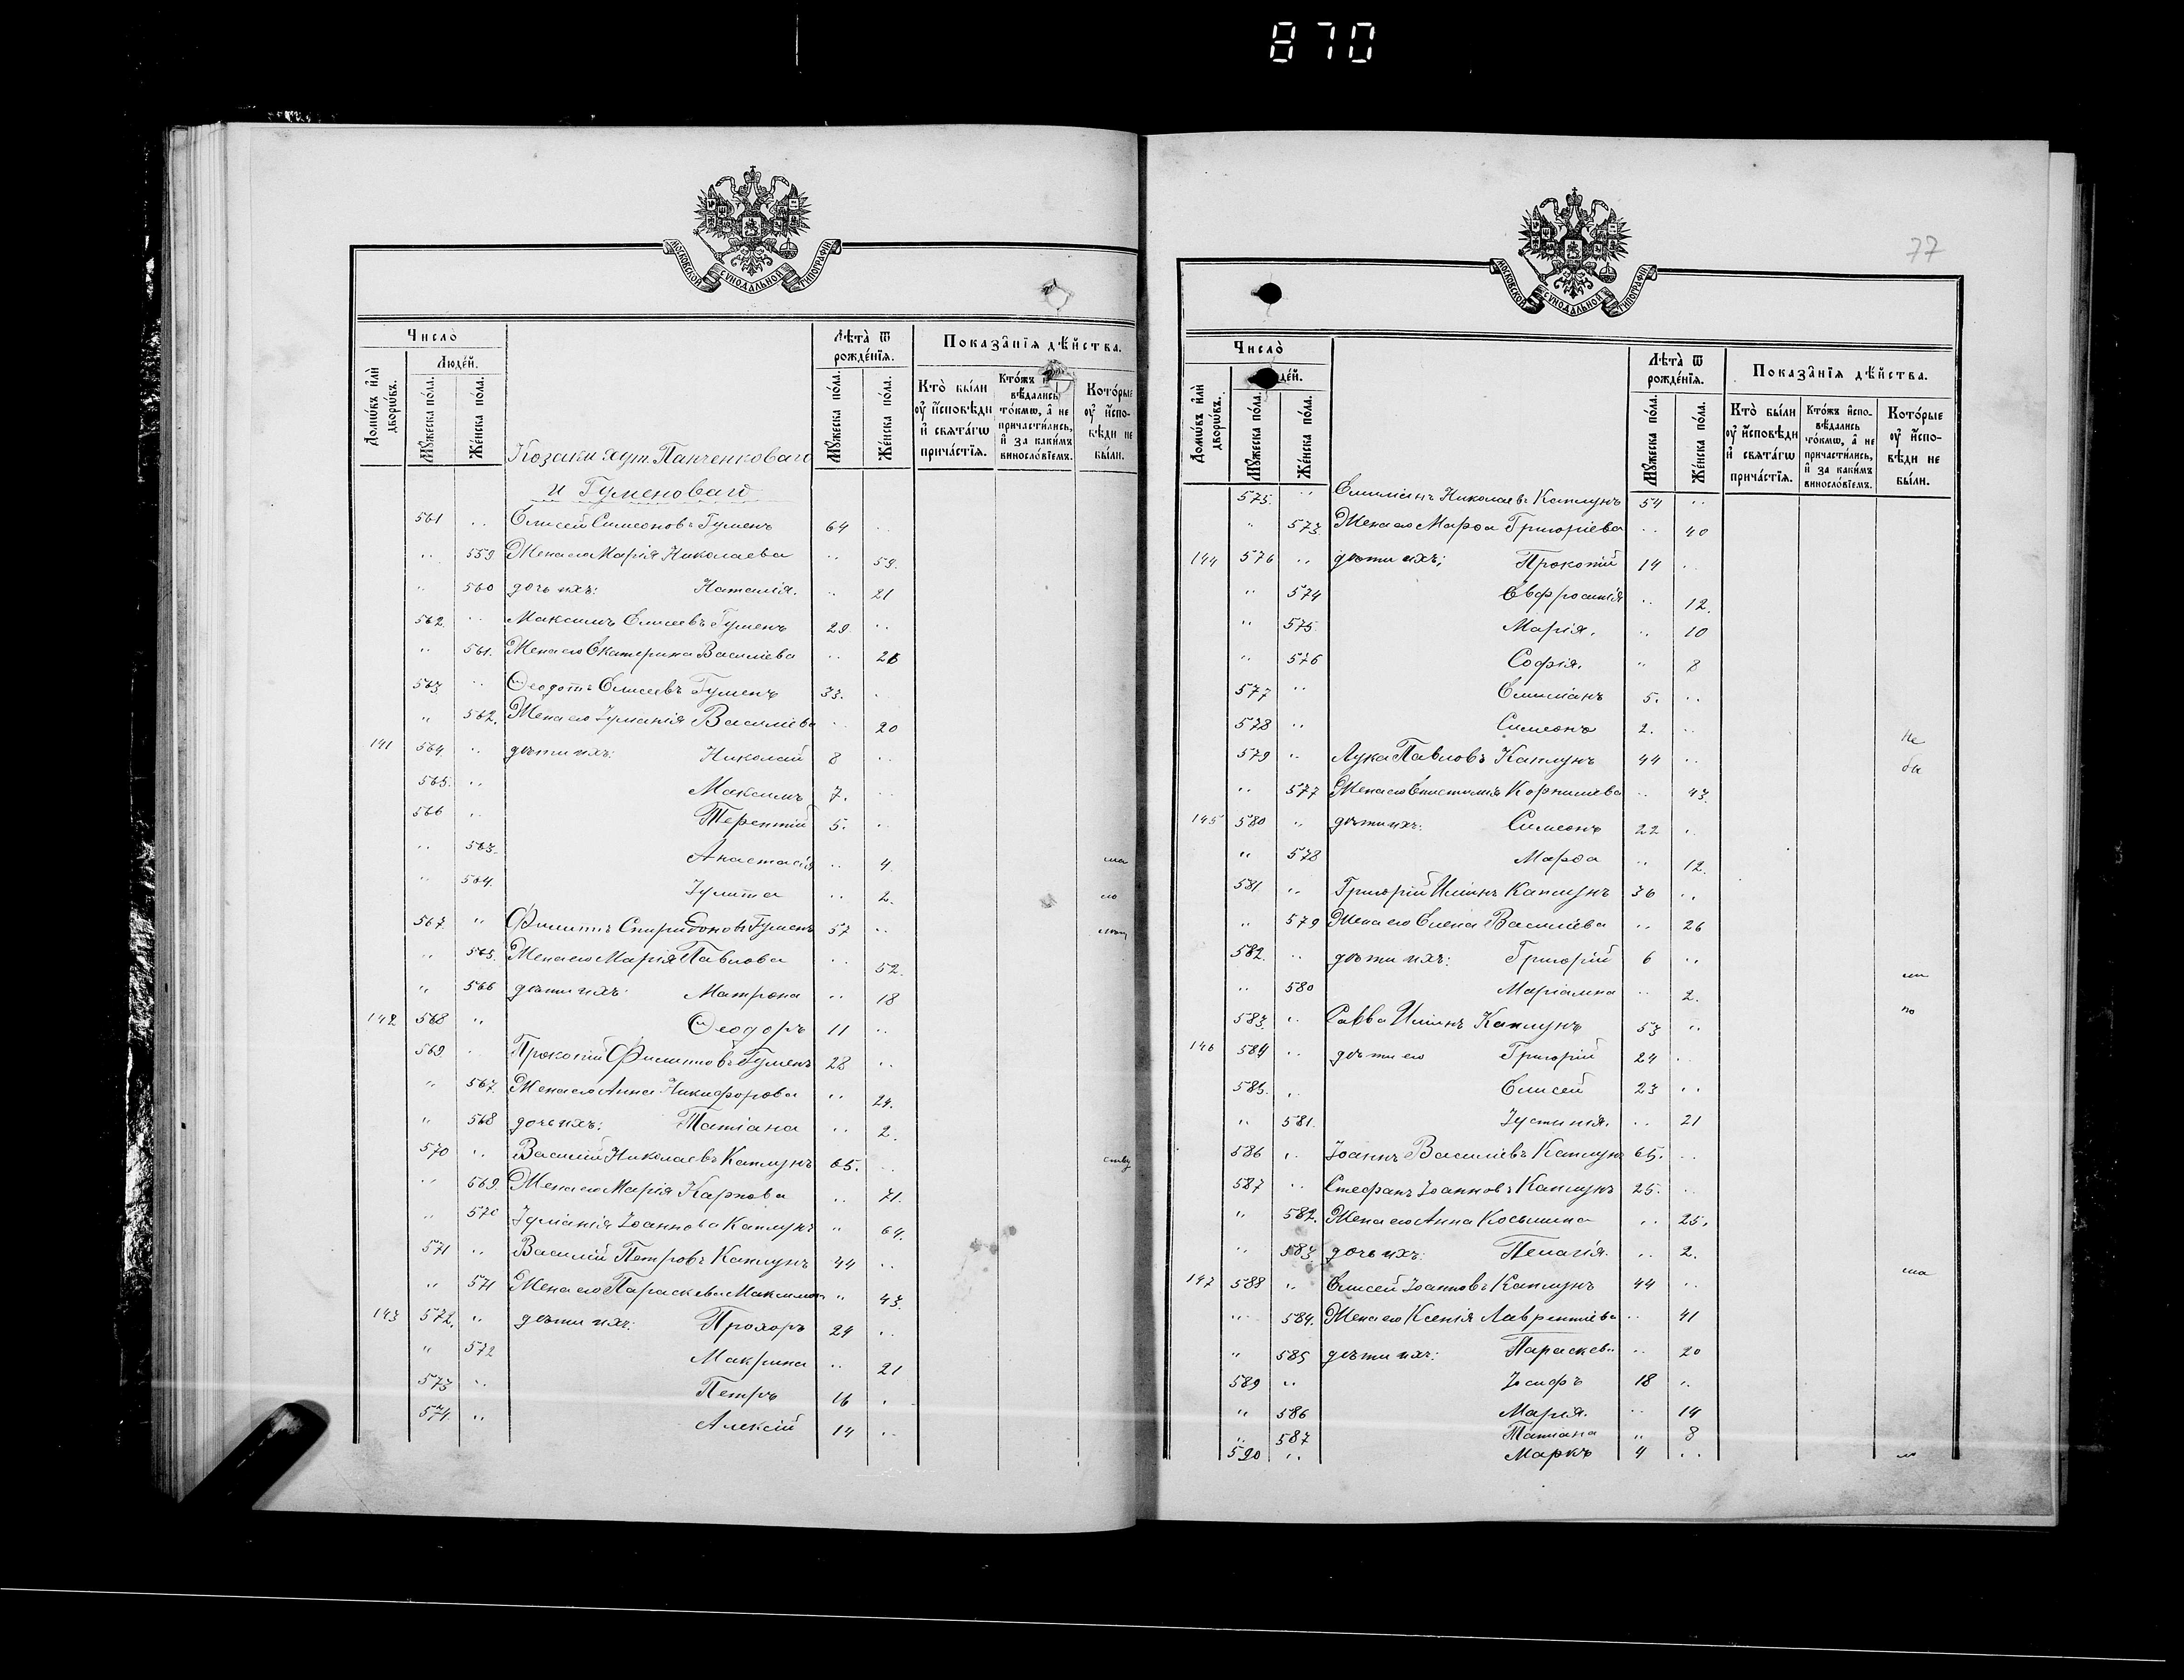 870
МОСКОВСКОЙ СѴНОДАЛЬНОЙ ТИПОГРАФІИ
Число
Людей.
Домѡвъ или дворѡвъ.
Мꙋжеска пола.
Женска пола.
Лѣта ѿ рожденїѧ.
Мꙋжеска пола.
Женска пола.
Показанїѧ дѣйства.
Кто были оу исповѣди и свѧтагѡ причастїѧ.
вѣдались токмѡ, а не причастились, и за какимъ винословїемъ.
Которые оу исповѣди не были.
Козаки хут. Панченковаго
и Гуменоваго
561 " Елисей Симеоновъ Гуменъ 64 "
" 559 Жена его Марія Николаева " 59.
" 560 дочь ихъ: Наталія. " 21
562. " Максимъ Елисеевъ Гуменъ 29. "
" 561. Жена его Екатерина Василіева " 26
563 " Ѳеодотъ Елисеевъ Гуменъ 33. "
" 562. Жена его Іуліанія Василіева " 20
141 564 " дѣти ихъ: Николай 8 "
565. " Максимъ 7. "
566 " Терентій 5. "
" 563. Анастасія " 4
" 564. Іулитта " 2.
567. " Филиппъ Спиридоновъ Гуменъ 57 "
" 565. Жена его Марія Павлова " 52.
" 566 дѣти ихъ: Матрона " 18
142 568 " Ѳеодоръ 11 "
569. " Прокопій Филипповъ Гуменъ 28 "
" 567. Жена его Анна Никифорова " 24.
" 568 дочь ихъ: Татіана " 2.
570 " Василій Николаевъ Каплунъ 65. "
" 569. Жена его Марія Карпова " 71.
" 570 Іуліанія Іоаннова Каплунъ " 64.
571 " Василій Петровъ Каплунъ 44 "
" 571 Жена его Параскева Максимов " 43.
143 572. " дѣти ихъ: Прохоръ 24 "
" 572 Макрина " 21
573 " Петръ 16 "
574. " Алексій 14 "
77
МОСКОВСКОЙ СѴНОДАЛЬНОЙ ТИПОГРАФІИ
Число
Домѡвъ или дворѡвъ.
Мꙋжеска пола.
Женска пола.
Лѣта ѿ рожденїѧ.
Мꙋжеска пола.
Женска пола.
Показанїѧ дѣйства.
Кто были оу исповѣди и свѧтагѡ причастїѧ.
Ктожъ исповѣдались токмѡ, а не причастились, и за какимъ винословїемъ.
Которые оу исповѣди не были.
575. " Емиліанъ Николаевъ Каплунъ 54 "
" 573. Жена его Марѳа Григоріева " 40
144 576 " дѣти ихъ: Прокопій 14 "
" 574 Евфросинія " 12.
" 575. Марія. " 10
" 576 Софія. " 8
577 " Емиліанъ 5. "
578 " Симеонъ 2. "
Не
579 " Лука Павловъ Каплунъ 44 "
бы
" 577 Жена его Епистимія Корниліева " 43.
145 580 " дѣти ихъ: Симеонъ 22 "
" 578 Марѳа " 12.
581 " Григорій Иліинъ Каплунъ 36 "
" 579 Жена его Елена Василіева " 26
582. " дѣти ихъ: Григорій 6 "
" 580 Маріамна " 2.
по
583. " Савва Иліинъ Каплунъ 53 "
146 584 " дѣти его Григорій 24 "
585. " Елисей 23 "
" 581. Іустинія. " 21
586 " Іоаннъ Василіевъ Каплунъ 65. "
587 " Стефанъ Іоанновъ Каплунъ 25. "
" 582. Жена его Анна Косьмина " 25.
" 583. дочь ихъ: Пелагія. " 2.
147 588 " Елисей Іоанновъ Каплунъ 44 "
" 584. Жена его Ксенія Лаврентіева " 41
" 585 дѣти ихъ: Параскева " 20
589 " Іосифъ 18 "
" 586 Марія. " 14
" 587 Татіана " 8
590 " Маркъ 4 "